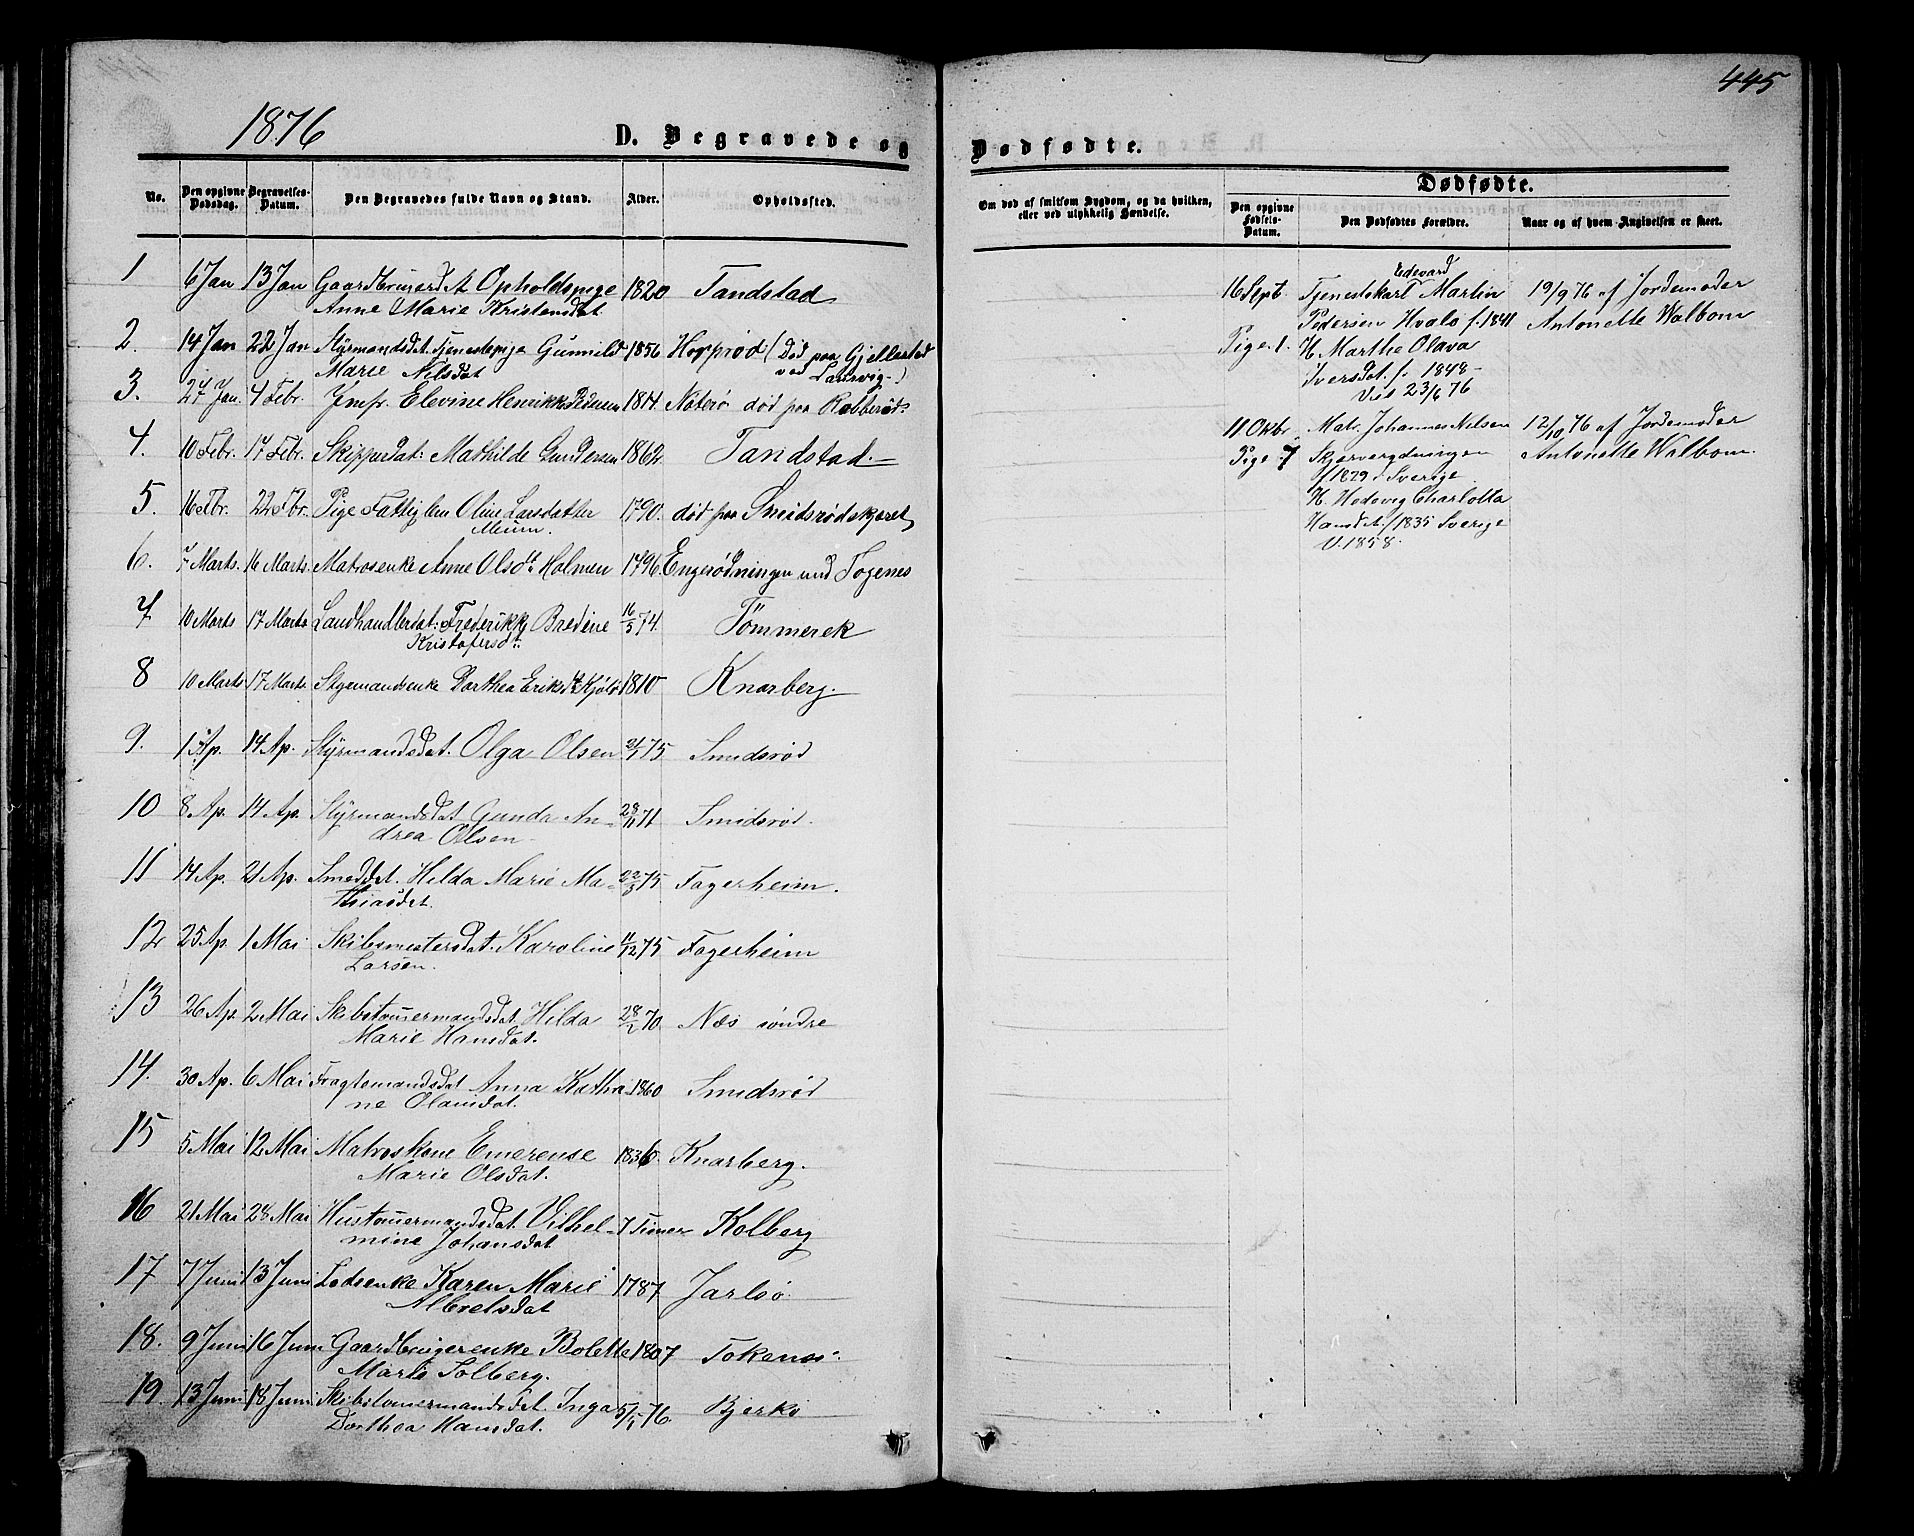 445
1876
D. Begravede og
Dødfødte.
No.
Den opgivne Dødsdag.
Begravelses-Datum.
Den Begravedes fulde Navn og Stand.
Alder.
Opholdssted.
Om død af smitsom Sygdom, og da hvilken, eller ved ulykkelig Hændelse.
Dødfødte.
Den opgivne Fødsels-Datum.
Den Dødfødtes Forældre.
Naar og af hvem Angivelsen er skeet.
1 6 Jan 13 Jan Opholdspige 1820 Tandstad
Anne Marie Kristensdat
2. 14 Jan 22 Jan Styrmandsdat. Tjenestepige Gunnild 1856 Hogsrød (Død paa Gjellestad
Marie Nilsdat ved Laurvig-)
3. 27 Jan. 4 Febr. Jmfr. Elevine Henrikke Pedersen 1814 Nøterø død paa Robberød
4. 10 Febr. 17 Febr. Skipperdat: Mathilde Gundersen 1862 Tandstad.
5. 16 Fbr. 22 Fbr. Pige Fattiglem Oline Larsdatter 1790. død paa Smidsrødskjæret
6. 7 Marts. 16 Marts. Matrosenke Anne Olsdt. Holmen 1796
7 10 Marts 17 Marts Landhandlerdat: Frederikke Bredine 16/5 74. Tömmerek
Kristofersdt:
8 10 Marts 17 Marts. Styrmandsenke Dorthea Eriksdt 1810 Knarberg.
9. 1 Ap. 14 Ap. Styrmandsdat. Olga Olsen 21/1 75 Smidsrød
10 8 Ap. 14 Ap. Styrmandsdat Gunda An-
drea Olsen 28/11 71 Smidsrød.
11 14 Ap. 21 Ap. Smeddat. Hilda Marie Ma- 22/3 75 Fagerheim.
thiasdat.
12 25 Ap. 1 Mai Skibsmestersdat. Karoline 11/12 75 Fagerheim
Larsen.
13 26 Ap. 2 Mai Skibstømermandsdat. Hilda 28/2 70 Næs søndre
Marie Hansdat.
14. 30 Ap. 6 Mai Fragtemandsdat Anna Kathri- 1860 Smidsrød
ne Olausdat.
15 5 Mai 12 Mai Matroskone Emerense 1836 Knarberg.
Marie Olsdat.
16 21 Mai 28 Mai Hustømermandsdat. Vilhel- 7 Timer Kolberg
mine Johansdat
17 7 Juni 13 Juni Lodsenke Karen Marie 1787 Jarlsø.
Albretsdat
18. 9 Juni 16 Juni Gaardbrugerenke Bolette 1807 Tokenes.
Marie Solberg.
19. 13 Juni 18 Juni Skibstømermandsdat. Inga 5/5 76. Bjerkø
Dorthea Hansdat.
16 Sept Tjenestekarl Edevard Martin 19/9 76 af Jordemoder
Pedersen Hvalø f. 1841 Antonette Walbom
Pige 1. H. Marthe Olava
Iversdat. f. 1848-
Vis 23/6 76
11 Okbr. Matr. Johannes Nilsen 12/10 76 af Jordemoder
Pige 7 Antonette Walbom.
f 1829 i Sverige
H. Hedevig Charlotta
Hansdat. f 1835 Sverige
V. 1858.